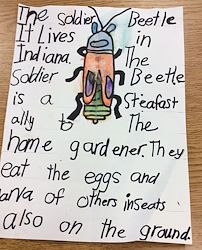 The soldier Beetle
It Lives in
Indiana. The
Soldier Beetle
is a Steafast
ally to The
home gardener. They
eat the eggs and
larva of others inseats
also on the ground.